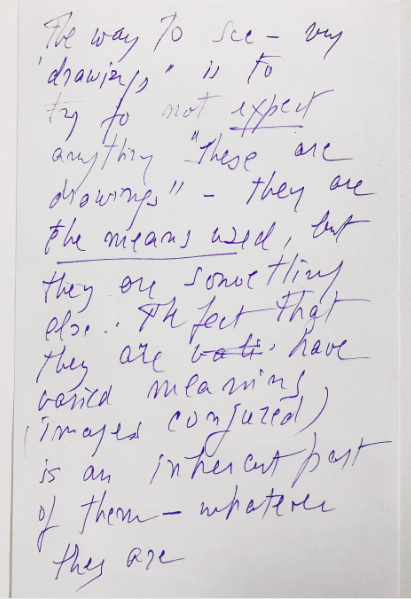 The way to see – my
"drawings" is to
try to not expect
anything "These are
drawings" – they are
the means used, but
they are something
else. The fact that
they are vari. have
varied meanings
(images conjured)
is an inherent part
of them – whatever
they are